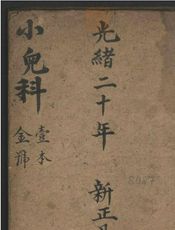 光緒二十年 新正月
小兒科
壹本
金號
8087